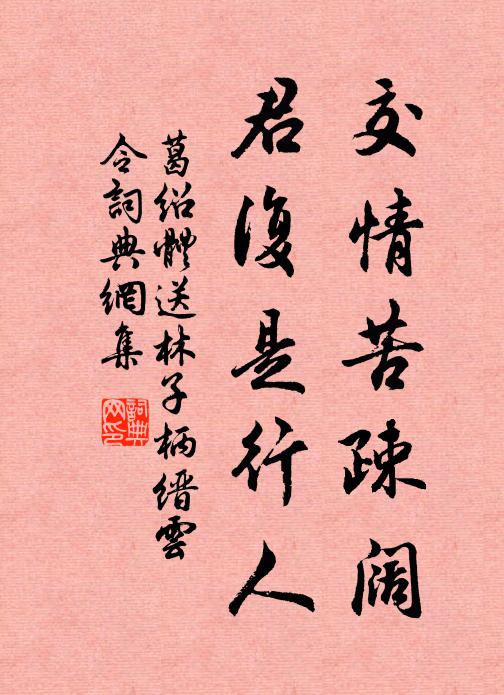 交情苦疎阔
君復是行人
葛绍體送林子柄缙雲
令詞典網集
詞典網印